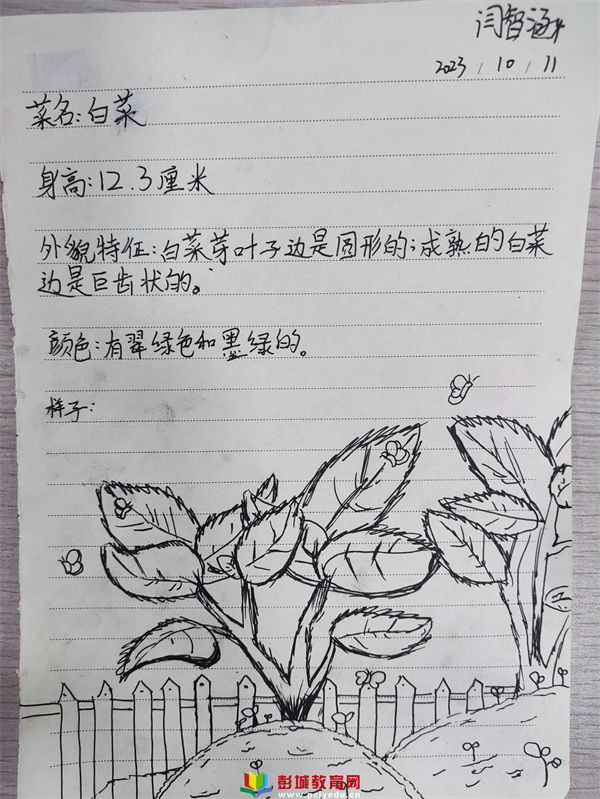 闫智涵
2023/10/11
菜名:白菜
身高:12.3厘米
外貌特征:白菜芽叶子边是圆形的;成熟的白菜
边是巨齿状的。
颜色:有翠绿色和墨绿的。
样子:
彭城教育网
www.pcjyedu.cn